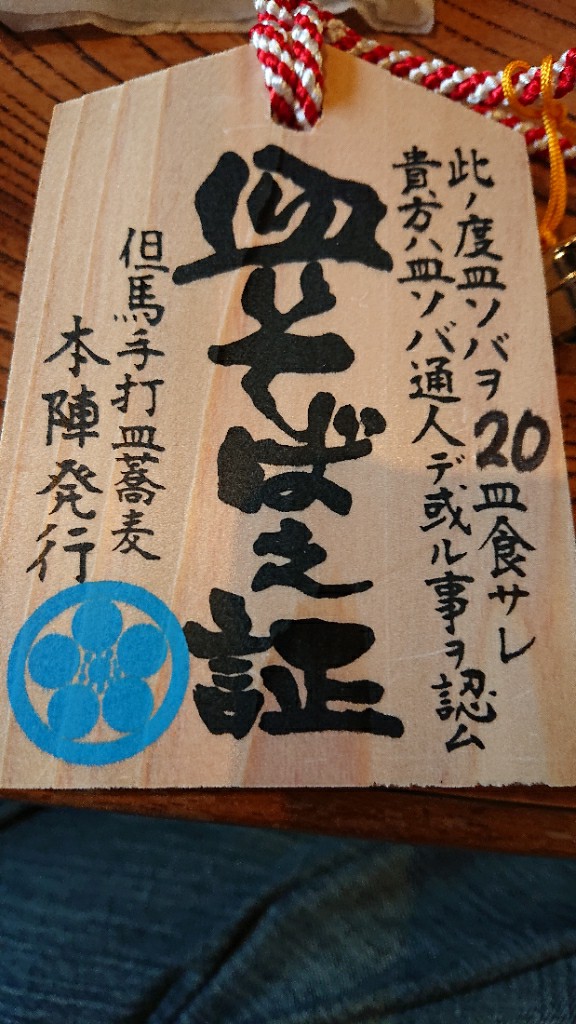 此ノ度皿ソバヲ20皿食サレ
貴方ハ皿ソバ通人デ或ル事ヲ認ム
皿そば之証
但馬手打皿蕎麦
本陣発行